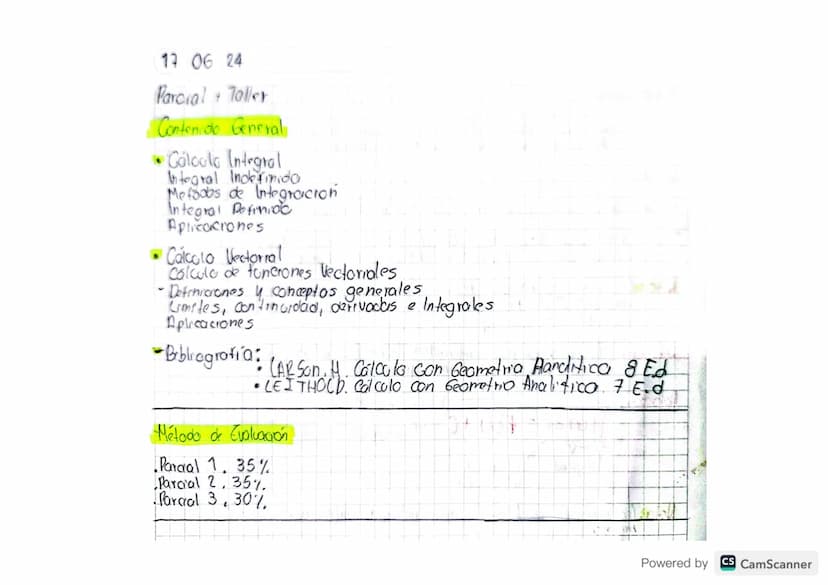 17 06 24
Parcial + Taller
Contenido General
• Cálculo Integral
Integral Indefinida
Metodos de Integración
Integral Definida
Aplicaciones
• Cálculo Vectorial
Cálculo de funciones Vectoriales
- Definiciones y conceptos generales
Limites, continuidad, derivadas e Integrales
Aplicaciones
- Bibliografía:
• LARSON, H. Cálculo con Geometria Analitica 8 Ed
• LEITHOLD. Cálculo con Geometria Analitica. 7 E.d
Método de Evaluación
. Parcial 1. 35%
. Parcial 2. 35%.
. Parcial 3. 30%.
Powered by CS CamScanner